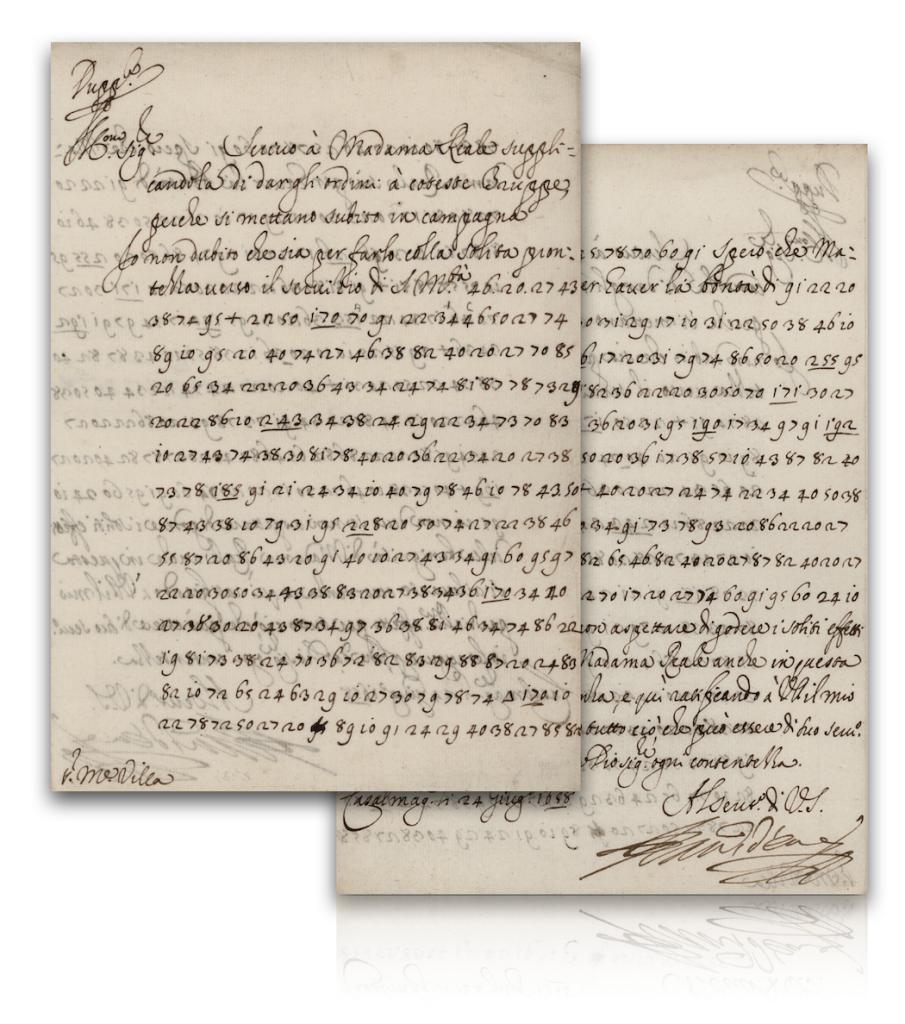 Dupp.to
Mon.r Sig.re Scrivo à Madama Reale suppli-
candola di dar gli ordini à coteste Truppe,
perche si mettano subito in campagna
Io non dubito che sia per farlo colla solita pron-
tezza verso il servitio di S. M.tà 46. 20. 27 43
38 74 95 + 22 50 170 70 91 22 34 46 50 27 74
89 10 95 20 40 74 27 46 38 82 40 20 27 70 85
20 65 34 22 20 36 43 34 24 74 81 87 78 73 29
20 22 86 20 243 34 38 24 29 22 34 73 70 83
10 27 43 74 38 30 81 78 40 20 36 22 34 20 27 38
73 78 185 91 21 24 34 10 40 79 78 46 10 78 43 50
87 43 38 10 79 31 95 228 20 50 74 27 22 38 46
55 87 20 86 43 20 91 40 10 27 43 34 91 60 95 97
22 20 30 50 34 43 38 83 20 27 38 34 36 170 34 40
27 36 30 20 43 87 34 97 36 38 81 46 34 74 86 22
19 81 73 38 24 70 36 72 82 83 29 88 87 20 24 83
82 10 72 65 24 63 29 10 27 30 79 78 74 Δ 170 10
22 78 72 50 27 20 89 10 91 24 29 40 38 27 85 8
S.r M.se Villa
57 87 0 60 91 Spero che Ma-
er haver la bontà di 91 22 20
31 29 17 10 31 22 50 38 46 10
17 20 31 79 74 86 50 20 255 95
82 36 22 20 30 50 70 171 30 27
36 20 31 95 190 17 34 97 91 192
20 36 17 38 57 10 43 87 82 40
40 20 27 24 74 22 34 40 50 38
34 91 73 78 93 20 86 22 20 27
82 65 46 82 40 20 27 87 82 40 20 27
70 17 20 27 74 60 91 95 60 24 10
on aspettare di godere i soliti effetti
Madama Reale anche in questa
e quì ratificando à V.S. il mio
tutto ciò che può essere di suo serv.o
Dio sig.re ogni contentezza.
Casalmag.re li 24 Giug.o 1658
Al serv.o di V.S.